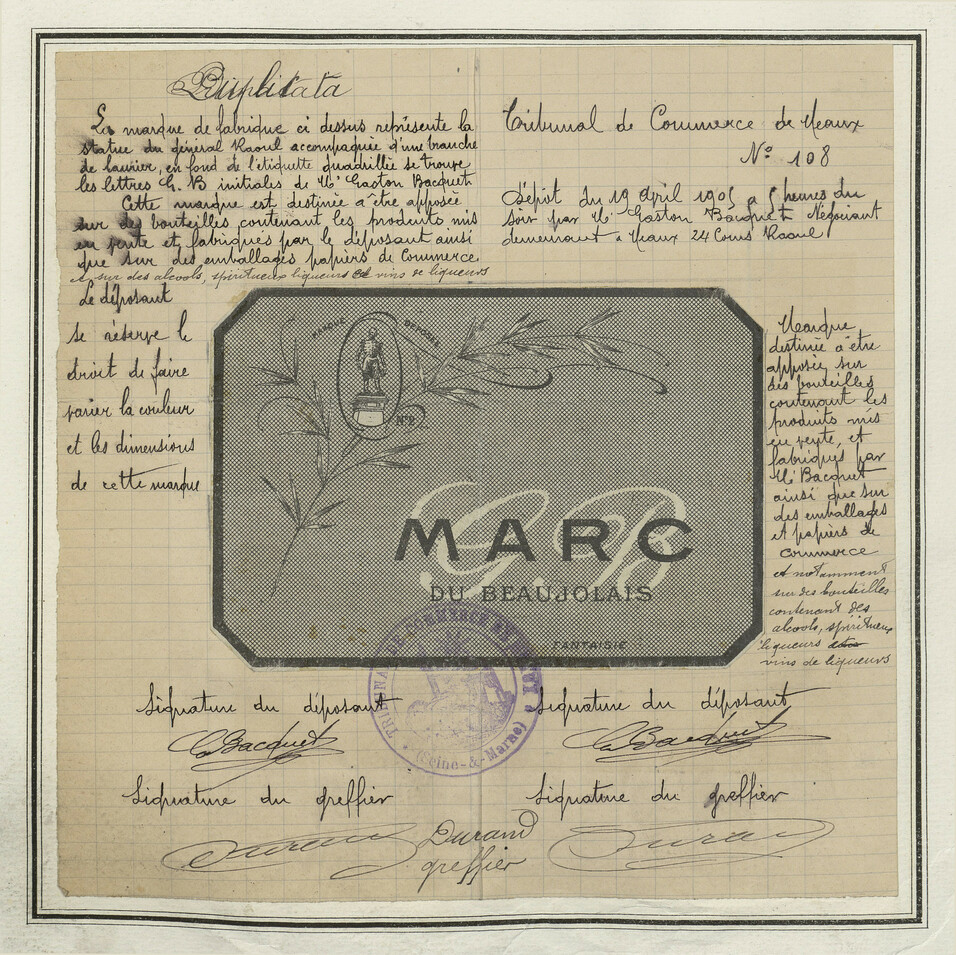 Duplicata
La marque de fabrique ci dessus représente la
statue du général Raoul accompagnée d'une branche
de laurier, en fond de l'étiquette quadrillée se trouve
les lettres G. B initiales de Mr Gaston Bacquet
Cette marque est destinée à être apposée
sur des bouteilles contenant les produits mis
en vente et fabriqués par le déposant ainsi
que sur des emballages papiers de Commerce
et sur des alcools, spiritueux liqueurs et vins de liqueurs
Le déposant
se réserve le
droit de faire
varier la couleur
et les dimensions
de cette marque
Tribunal de Commerce de Meaux
No 108
Dépôt du 19 April 1905 a 5 heures du
soir par Mr Gaston Bacquet Négociant
demeurant a Meaux 24 Cours Raoul
MARQUE DEPOSÉE
No 2
G.B
MARC
DU BEAUJOLAIS
FANTAISIE
Marque
destinée à être
apposée sur
des bouteilles
contenant les
produits mis
en vente, et
fabriqués par
Mr Bacquet
ainsi que sur
des emballages
et papiers de
commerce
et notamment
sur des bouteilles
contenant des
alcools, spiritueux
liqueurs
vins de liqueurs
TRIBUNAL DE COMMERCE DE MEAUX
(Seine-&-Marne)
Signature du déposant
G Bacquet
Signature du déposant
G Bacquet
Signature du greffier
Durand
Durand
greffier
Signature du greffier
Durand